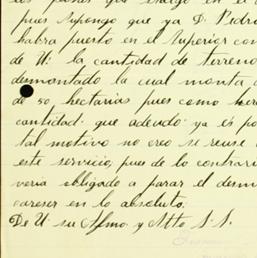 pues supongo que ya D. Pedro
habra puesto en el Superior con
de U: la cantidad de terreno
desmontado la cual monta a
de 50, hectarias pues como
cantidad: que adeudo: ya es po
tal motivo no creo se reuse
este servicio, pues de lo contrari
veria obligado a parar el desm
careser en lo absoluto.
De U. su Afmo. y Atto S. S.